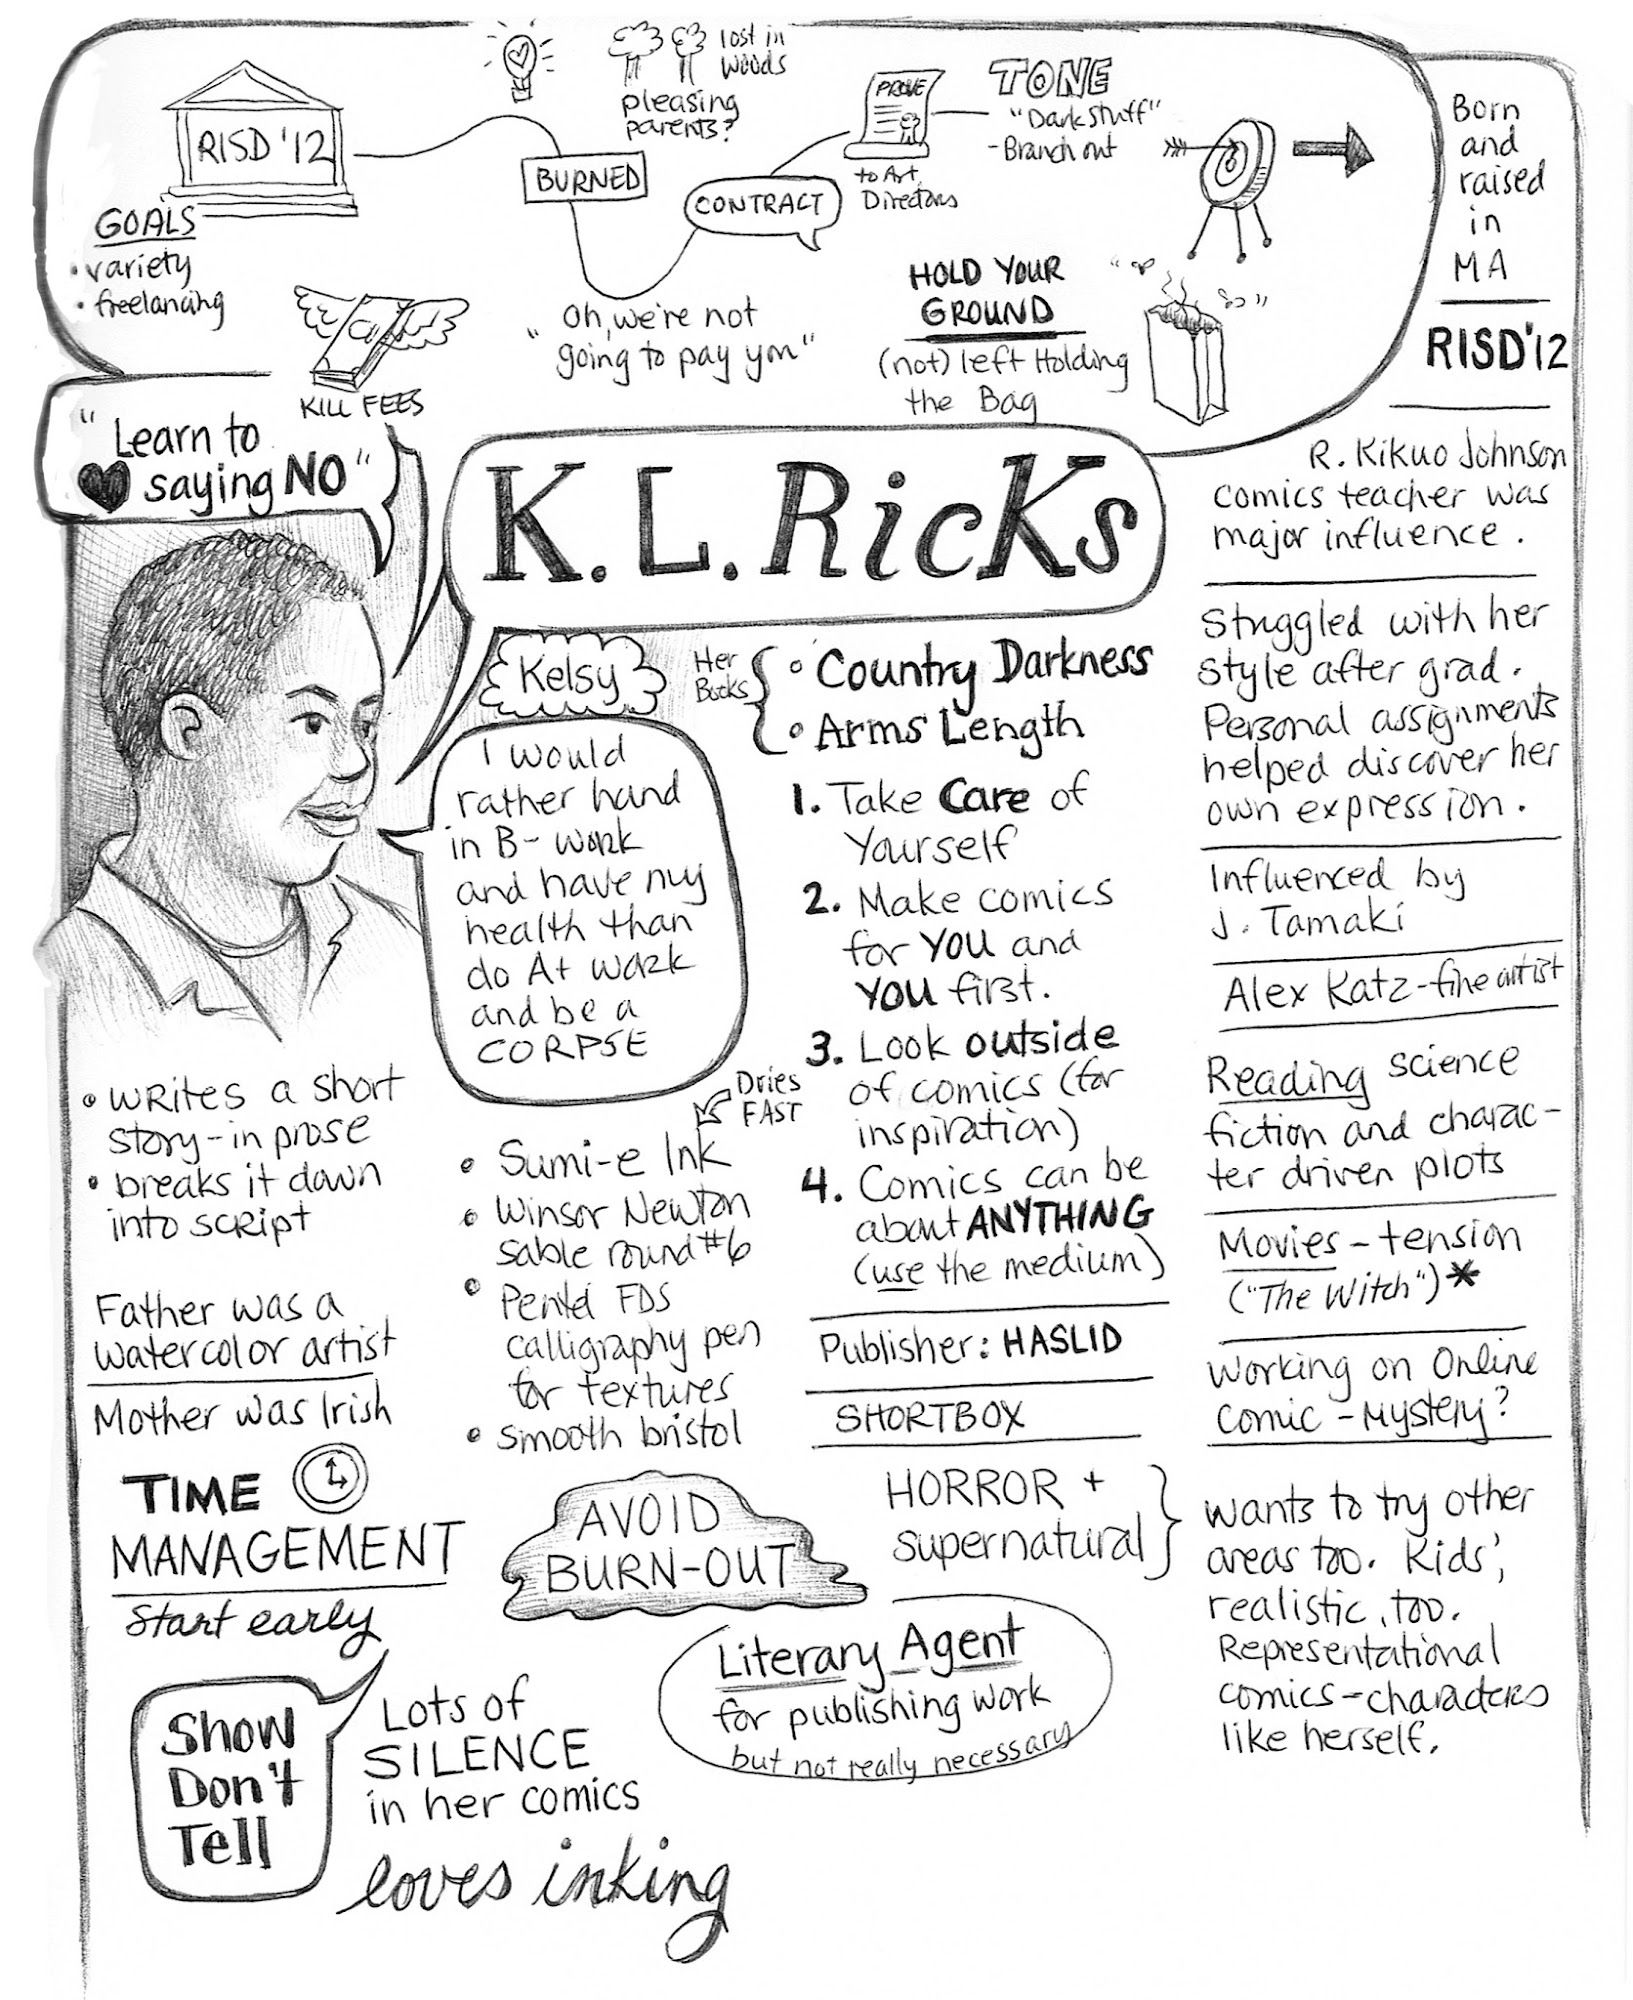 RISD '12
GOALS
• variety
• freelancing
lost in
woods
pleasing
parents?
BURNED
CONTRACT
PROVE
to Art
Directors
TONE
"Dark stuff"
- Branch out
KILL FEES
"Oh, we're not
going to pay you"
HOLD YOUR
GROUND
(not) left Holding
the Bag
"Learn to
♥ saying NO"
K.L. Ricks
Kelsy
Her
Books
• Country Darkness
• Arms Length
I would
rather hand
in B- work
and have my
health than
do A+ work
and be a
CORPSE
1. Take Care of
Yourself
2. Make comics
for YOU and
YOU first.
3. Look outside
of comics (for
inspiration)
4. Comics can be
about ANYTHING
(use the medium)
Publisher: HASLID
SHORTBOX
HORROR +
supernatural
• writes a short
story - in prose
• breaks it down
into script
Father was a
watercolor artist
Mother was Irish
TIME
MANAGEMENT
Start early
Show
Don't
Tell
Lots of
SILENCE
in her comics
loves inking
Dries
FAST
• Sumi-e Ink
• Winsor Newton
sable round #6
• Pentel FDS
calligraphy pen
for textures
• smooth bristol
AVOID
BURN-OUT
Literary Agent
for publishing work
but not really necessary
Born
and
raised
in
MA
RISD '12
R. Kikuo Johnson
comics teacher was
major influence.
Struggled with her
style after grad.
Personal assignments
helped discover her
own expression.
Influenced by
J. Tamaki
Alex Katz - fine artist
Reading science
fiction and charac-
ter driven plots
Movies - tension
("The Witch") *
Working on Online
Comic - Mystery?
wants to try other
areas too. Kids',
realistic, too.
Representational
comics - characters
like herself.